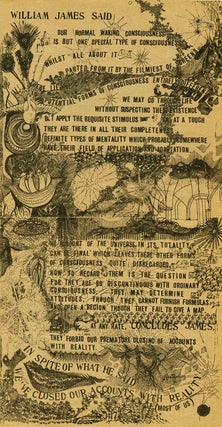 WILLIAM JAMES SAID:
OUR NORMAL WAKING CONSCIOUSNESS
IS BUT ONE SPECIAL TYPE OF CONSCIOUSNESS
WHILST ALL ABOUT IT
PARTED FROM IT BY THE FILMIEST OF
LIE
POTENTIAL FORMS OF CONSCIOUSNESS ENTIRELY
WE MAY GO THROUGH LIFE
WITHOUT SUSPECTING THEIR EXISTENCE
BUT APPLY THE REQUISITE STIMULUS AT A TOUCH
THEY ARE THERE IN ALL THEIR COMPLETENESS
DEFINITE TYPES OF MENTALITY WHICH PROBABLY SOMEWHERE
HAVE THEIR FIELD OF APPLICATION AND ADAPTATION.
NO ACCOUNT OF THE UNIVERSE IN ITS TOTALITY
CAN BE FINAL WHICH LEAVES THESE OTHER FORMS
OF CONSCIOUSNESS QUITE DISREGARDED.
HOW TO REGARD THEM IS THE QUESTION
FOR THEY ARE SO DISCONTINUOUS WITH ORDINARY
CONSCIOUSNESS. THEY MAY DETERMINE
ATTITUDES, THOUGH THEY CANNOT FURNISH FORMULAS
OPEN A REGION THOUGH THEY FAIL TO GIVE A MAP.
AT ANY RATE, CONCLUDES JAMES,
THEY FORBID OUR PREMATURE CLOSING OF ACCOUNTS
WITH REALITY.
SPITE OF WHAT HE SAID
WE'VE CLOSED OUR ACCOUNTS WITH REALITY
(MOST OF US)